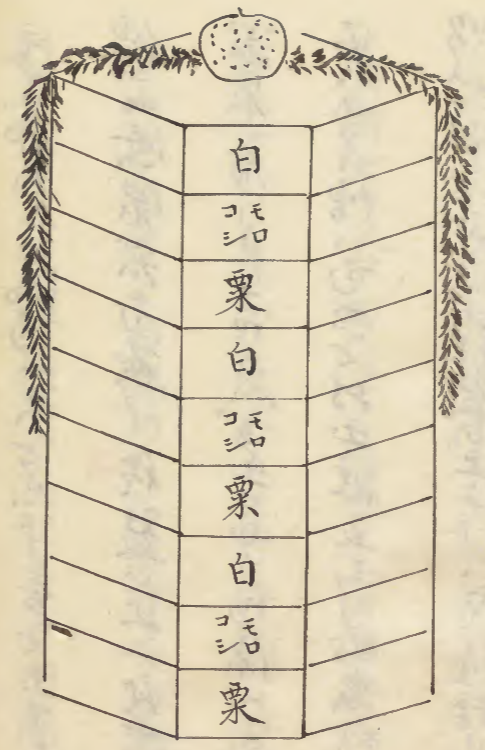 白
モロ
コシ
粟
白
モロ
コシ
粟
白
モロ
コシ
粟